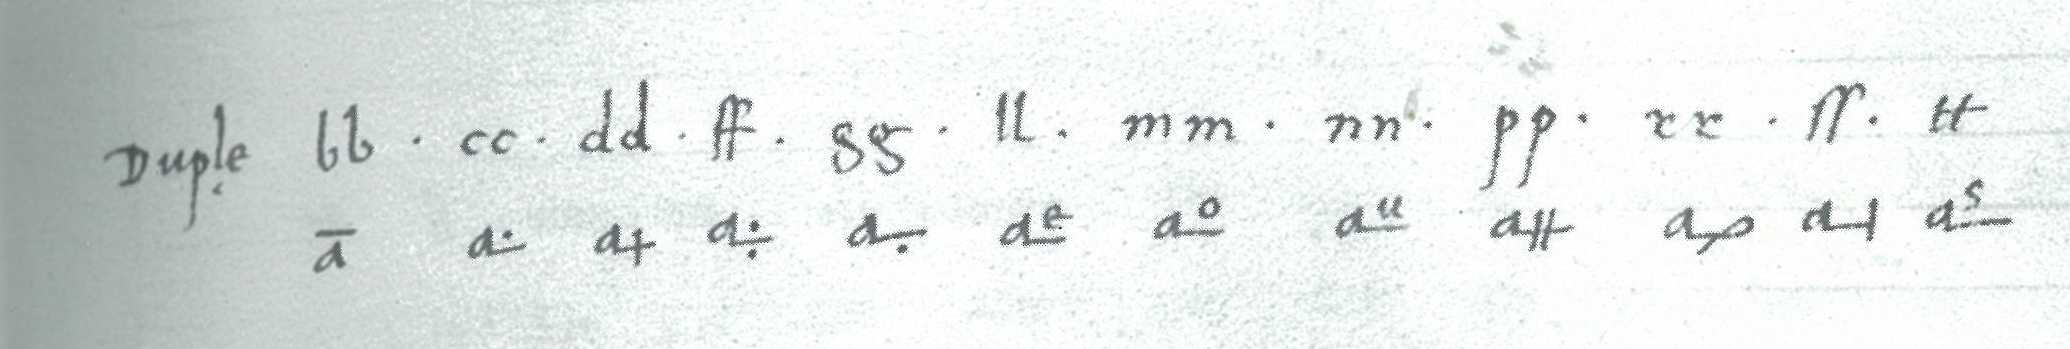 Duple bb · cc · dd · ff · gg · ll · mm · nn · pp · rr · ſſ · tt
a a a a a aᵉ aᵒ aᵘ a a a aˢ